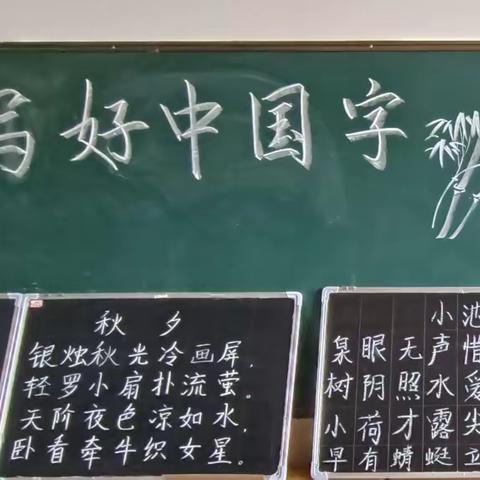 写好中国字
秋夕
银烛秋光冷画屏,
轻罗小扇扑流萤。
天阶夜色凉如水,
卧看牵牛织女星。
小池
泉眼无声惜
树阴照水爱
小荷才露尖
早有蜻蜓立